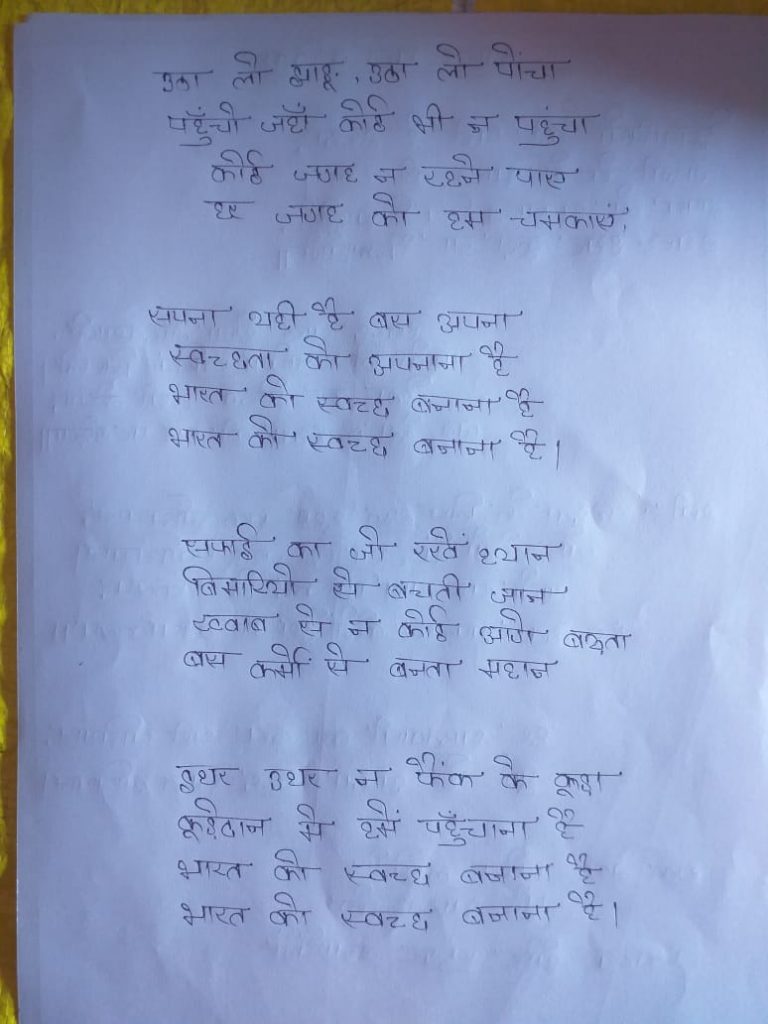 उठा लो झाड़ू, उठा लो पोंचा
पहुँचो जहाँ कोई भी न पहुंचा
कोई जगह न रहने पाए
हर जगह को हम चमकाएं,
सपना यही है बस अपना
स्वच्छता को अपनाना है
भारत को स्वच्छ बनाना है
भारत को स्वच्छ बनाना है।
सफाई का जो रखें ध्यान
बिमारियो से बचती जान
ख्वाब से न कोई आगे बढ़ता
बस कर्मों से बनता महान
इधर उधर न फैंक के कूड़ा
कूड़ेदान मे हमें पहुँचाना है
भारत को स्वच्छ बनाना है
भारत को स्वच्छ बनाना है।